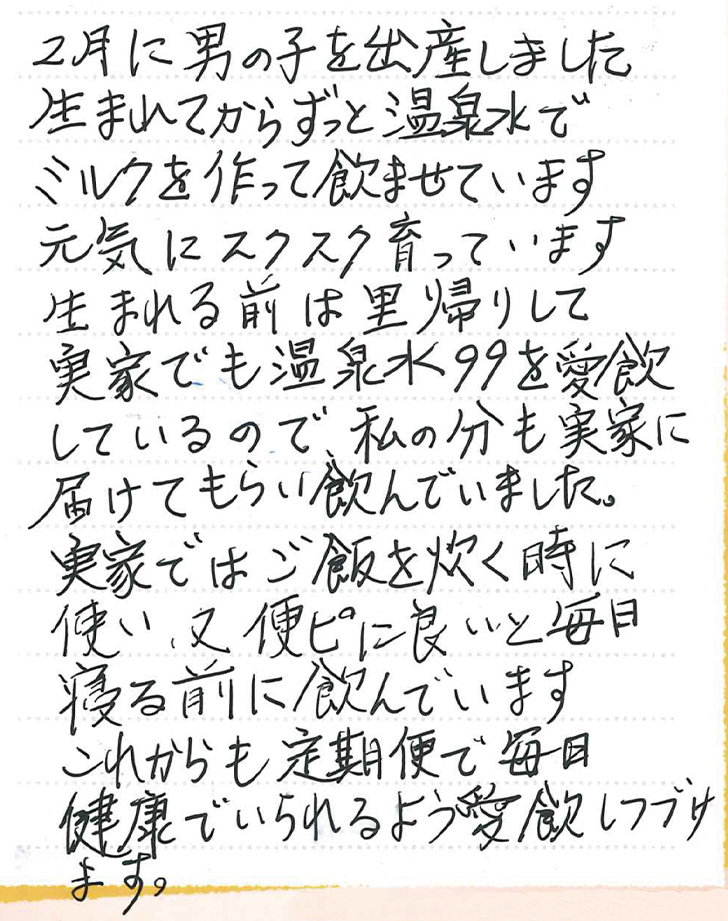 2月に男の子を出産しました
生まれてからずっと温泉水で
ミルクを作って飲ませています
元気にスクスク育っています
生まれる前は里帰りして
実家でも温泉水99を愛飲
しているので、私の分も実家に
届けてもらい飲んでいました。
実家ではご飯を炊く時に
使い、又便ピに良いと毎日
寝る前に飲んでいます
これからも定期便で毎日
健康でいられるよう愛飲しつづけ
ます。